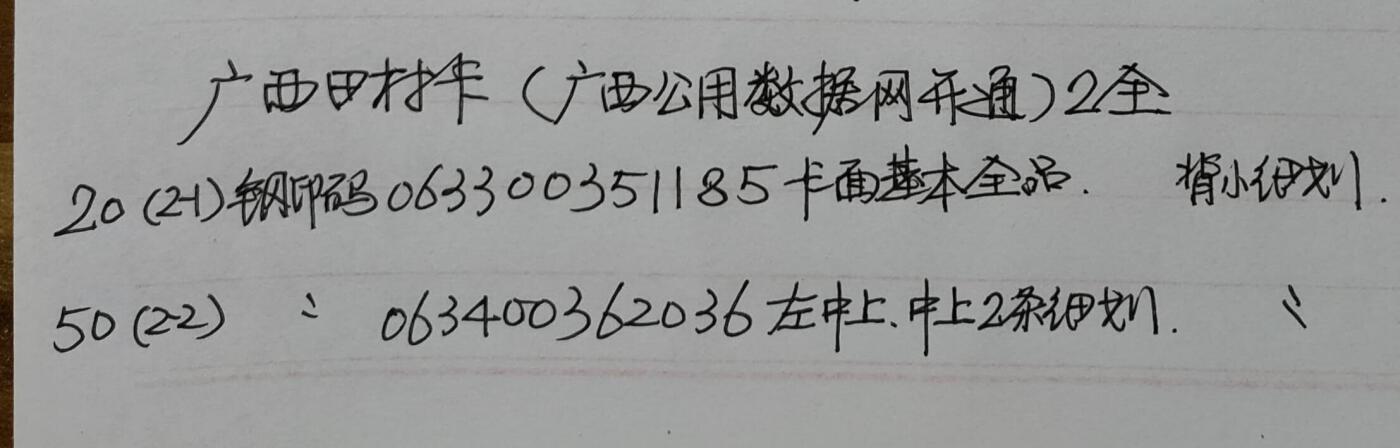 广西田村卡（广西公用数据网开通）2全
20（2-1）钢印码063300351185卡面基本全品. 背小细划.
50（2-2） 〃 063400362036左中上、中上2条细划. 〃